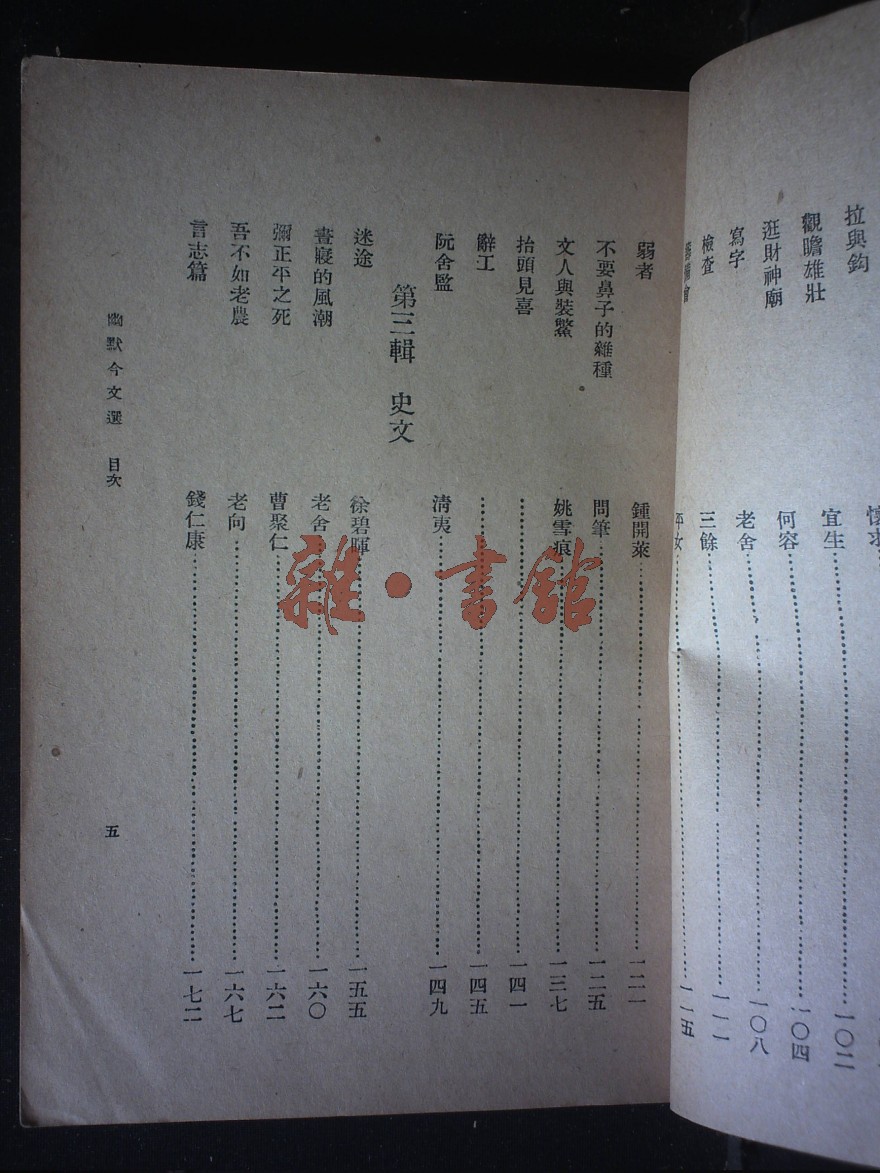 拉與鈎
觀瞻雄壯 宜生 一〇二
逛財神廟 何容 一〇四
寫字 老舍 一〇八
檢查 三餘 一一一
一一五
弱者 鍾開萊 一二一
不要鼻子的雜種 問筆 一二五
文人與裝鱉 姚雪痕 一三七
抬頭見喜 一四一
辭工 一四五
阮舍監 清夷 一四九
第三輯 史文
迷途 徐碧暉 一五五
晝寢的風潮 老舍 一六〇
彌正平之死 曹聚仁 一六二
吾不如老農 老向 一六七
言志篇 錢仁康 一七二
幽默今文選 目次
五
雜·書館